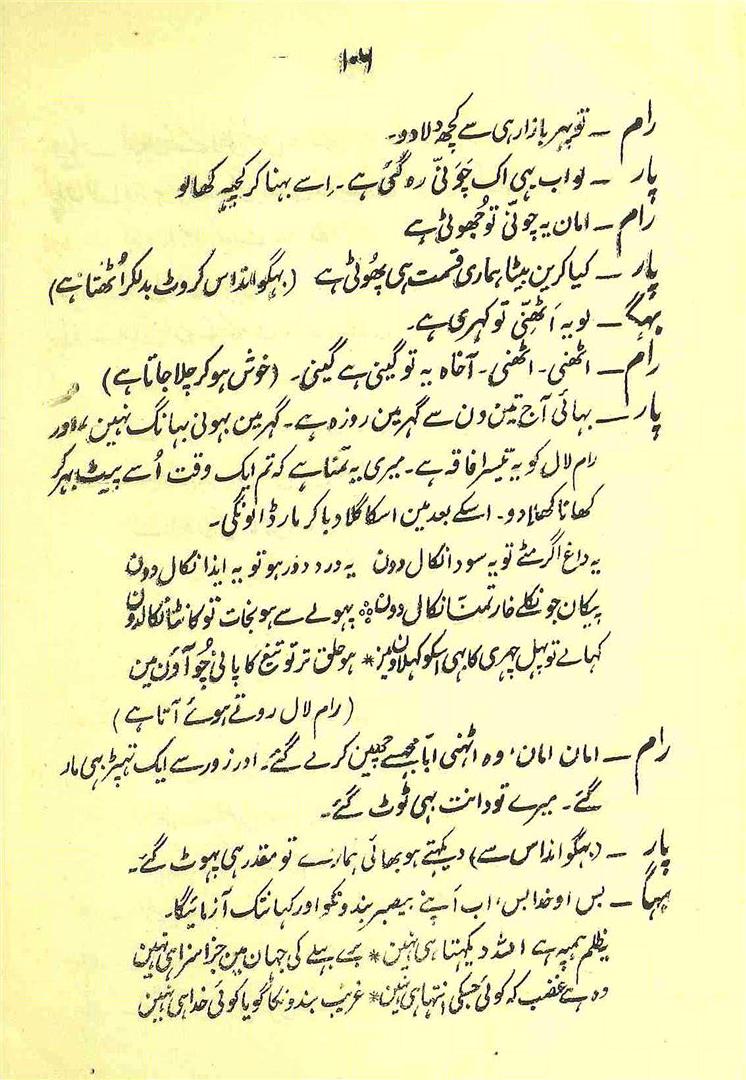 ۱۰۶
رام ـ تو پہر بازار ہی سے کچھ دلا دو۔
پار ـ لو اب یہی اک چَوَنّی رہ گئی ہے۔ اِسے بہنا کر کچہہ کھا لو
رام ـ امان یہ چونّی تو جُھوٹی ہے
پار ـ کیا کرین بیٹا ہماری قسمت ہی پُھوٹی ہے (بہگوانداس کروٹ بدلکر اُٹھتا ہے)
بہگ ـ لو یہ اَٹھنّی تو کہری ہے۔
رام ـ اٹھنی۔ اٹھنی۔ آخاہ یہ تو گینی ہے گینی۔ (خوش ہو کر چلا جاتا ہے)
پار ـ بہائی آج تین دن سے گہر مین روزہ ہے۔ گہر مین بہونی بہانگ نہین اور
رام لال کو یہ تیسرا فاقہ ہے۔ میری یہ تمنّا ہے کہ تم ایک وقت اُسے پیٹ بہر کر
کھانا کھلا دو۔ اسکے بعد مین اسکا گلا دبا کر مار ڈالونگی۔
یہ داغ اگر مٹے تو یہ سودا نکال دون یہ درد دور ہو تو یہ ایذا نکال دون
پیکان جو نکلے خار تمنّا نکال دون * پہولے سے ہو نجات تو کانٹا نکالدون
کہائے تو پہل چہری کا ہی اسکو کہلاؤن مین * ہو حلق تر تو تیغ کا پانی چُوآؤن مین
(رام لال روتے ہوئے آتا ہے)
رام ـ امان امان، وہ اٹہنی ابّا مجہسے چہین کر لے گئے۔ اور زور سے ایک تہپڑ بہی مار
گئے۔ میرے تو دانت بہی ٹوٹ گئے۔
پار ـ (بہگوانداس سے) دیکہتے ہو بھائی ہمارے تو مقدر ہی پہوٹ گئے۔
بہگا ـ بس او خدا بس، اب اَپنے بیصبر بندونکو اور کہانتک آزمائیگا۔
یہ ظلم ہمپہ ہے اللہ دیکہتا ہی نہین * بُرے بہلے کی جہان مین جزا سزا ہی نہین
وہ ہے غضب کہ کوئی جسکی انتہا ہی نہین * غریب بندونکا گویا کوئی خدا ہی نہین